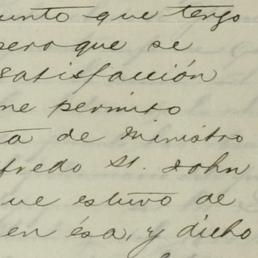 unto que tengo
pero que se
satisfacción
me permito
ta de Ministro
fredo St. John
ue estuvo de
en ésa, y dicho